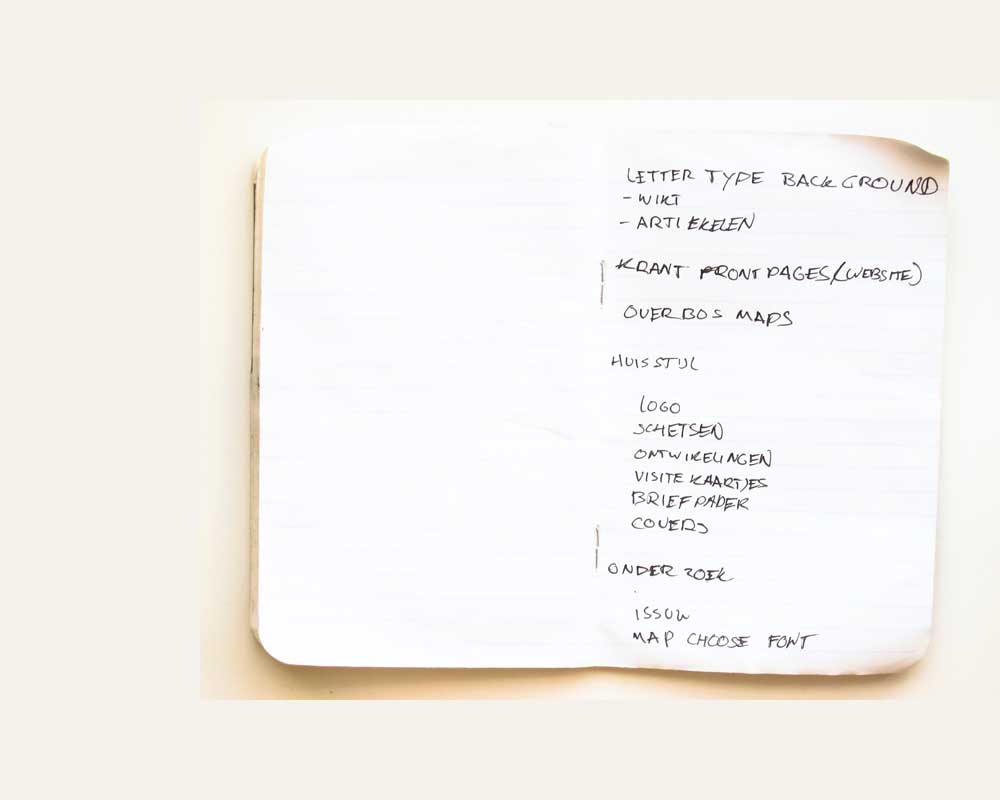 LETTER TYPE BACKGROUND
- WIKI
- ARTIEKELEN
KRANT FRONT PAGES (WEBSITE)
OVERBOS MAPS
HUISSTIJL
LOGO
SCHETSEN
ONTWIKELINGEN
VISITE KAARTJES
BRIEF PAPER
COVERS
ONDER ZOEK
ISSUU
MAP CHOOSE FONT